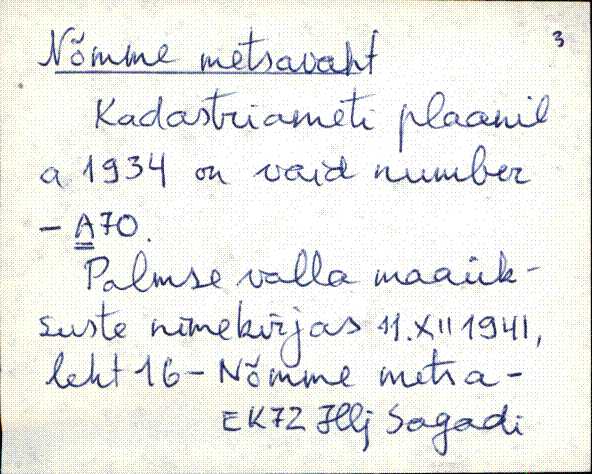 3
Nõmme metsavaht
Kadastriameti plaanil
a 1934 on vaid number
- A70.
Palmse valla maaük-
suste nimekirjas 11.XII 1941,
leht 16 - Nõmme metsa-
EK72 Hlj Sagadi